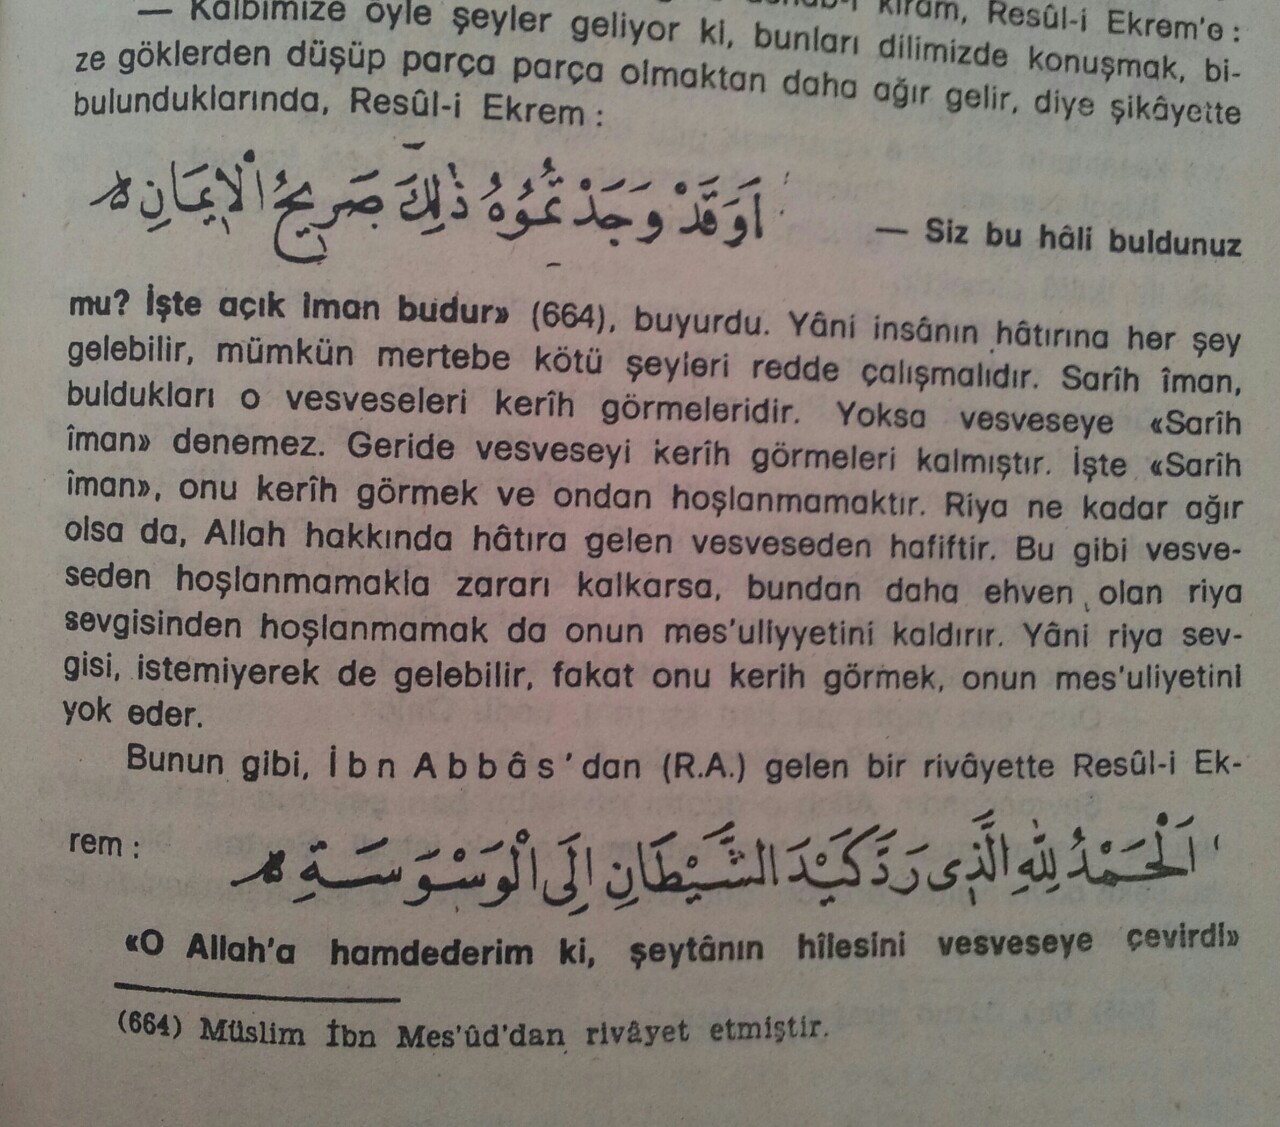 kirâm, Resûl-i Ekrem'e :
— Kalbimize öyle şeyler geliyor ki, bunları dilimizde konuşmak, bi-
ze göklerden düşüp parça parça olmaktan daha ağır gelir, diye şikâyette
bulunduklarında, Resûl-i Ekrem :
اَوَقَدْ وَجَدْتُمُوُهُ ذٰلِكَ صَرِيحُ الْاِيمَانِ
— Siz bu hâli buldunuz
mu? İşte açık iman budur» (664), buyurdu. Yâni insânın hâtırına her şey
gelebilir, mümkün mertebe kötü şeyleri redde çalışmalıdır. Sarîh îman,
buldukları o vesveseleri kerîh görmeleridir. Yoksa vesveseye «Sarîh
îman» denemez. Geride vesveseyi kerîh görmeleri kalmıştır. İşte «Sarîh
îman», onu kerîh görmek ve ondan hoşlanmamaktır. Riya ne kadar ağır
olsa da, Allah hakkında hâtıra gelen vesveseden hafiftir. Bu gibi vesve-
seden hoşlanmamakla zararı kalkarsa, bundan daha ehven olan riya
sevgisinden hoşlanmamak da onun mes'uliyyetini kaldırır. Yâni riya sev-
gisi, istemiyerek de gelebilir, fakat onu kerih görmek, onun mes'uliyetini
yok eder.
Bunun gibi, İbn Abbâs'dan (R.A.) gelen bir rivâyette Resûl-i Ek-
rem : اَلْحَمْدُ لِلّٰهِ الَّذِى رَدَّ كَيْدَ الشَّيْطَانِ اِلَى الْوَسْوَسَةِ
«O Allah'a hamdederim ki, şeytânın hîlesini vesveseye çevirdi»
(664) Müslim İbn Mes'ûd'dan rivâyet etmiştir.